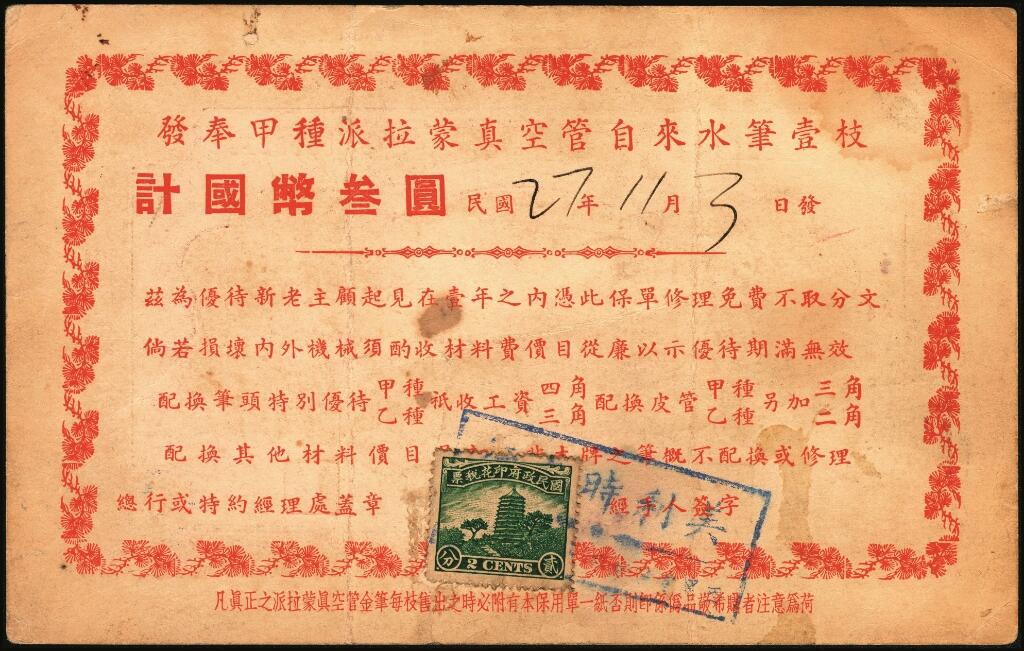 發奉甲種派拉蒙真空管自來水筆壹枝
計國幣叁圓 民國27年11月3日發
茲為優待新老主顧起見在壹年之內憑此保單修理免費不取分文
倘若損壞內外機械須酌收材料費價目從廉以示優待期滿無效
配換筆頭特別優待甲種乙種祇收工資四角三角配換皮管甲種乙種另加三角二角
配換其他材料價目 牌之筆概不配換或修理
總行或特約經理處蓋章 經手人簽字
國民政府印花稅票
分 2 CENTS 貳
美利時
凡眞正之派拉蒙眞空管金筆每枝售出之時必附有本保用單一紙否則卽係僞品敝希賜者注意爲荷